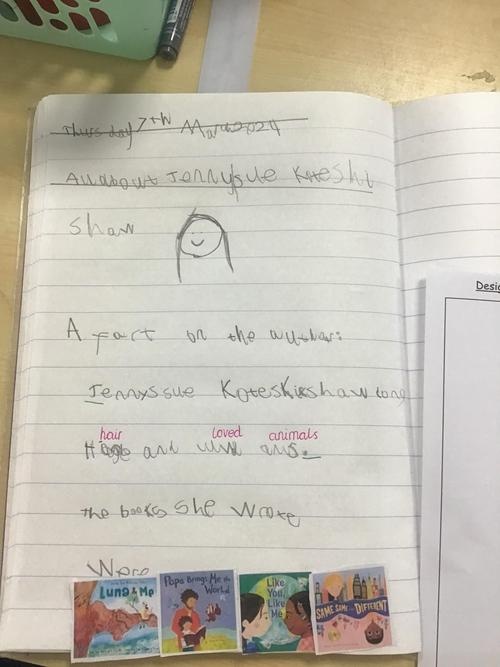 Thursday 7th March 2024
All about Jennysue Koteshi
Shaw
A fact on the author:
Jennyssue Koteskieshaw long
hair loved animals
and
the books she wrote
Were
Luna & Me
Papa Brings Me the World
Like You, Like Me
SAME SAME DIFFERENT
Desig